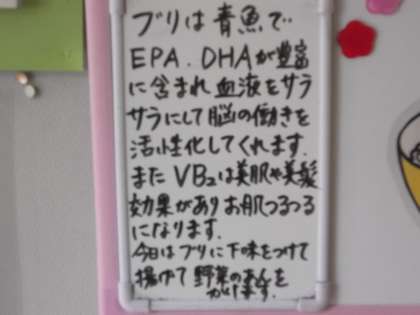 ブリは青魚で
EPA.DHAが豊富
に含まれ血液をサラ
サラにして脳の働きを
活性化してくれます.
またVB₂は美肌や美髪
効果がありお肌つるつる
になります.
今日はブリに下味をつけて
揚げて野菜のあんを
かけます.